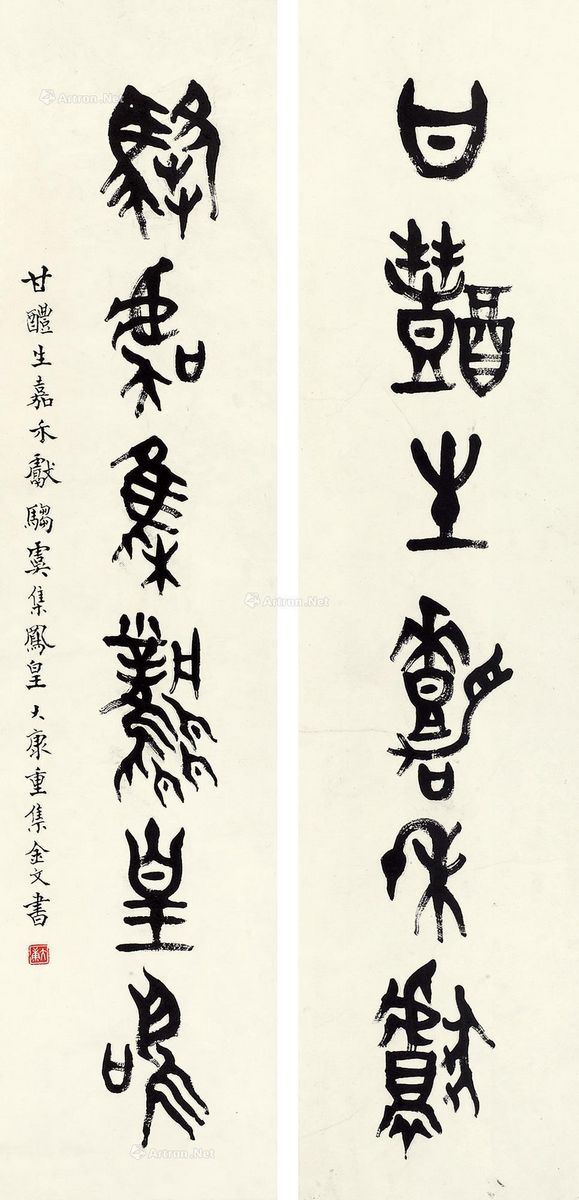 甘醴生嘉禾獻
騶虞集鳳皇鳴
甘醴生嘉禾獻騶虞集鳳皇大康重集金文書
Artron.Net
Artron.Net
Artron.Net